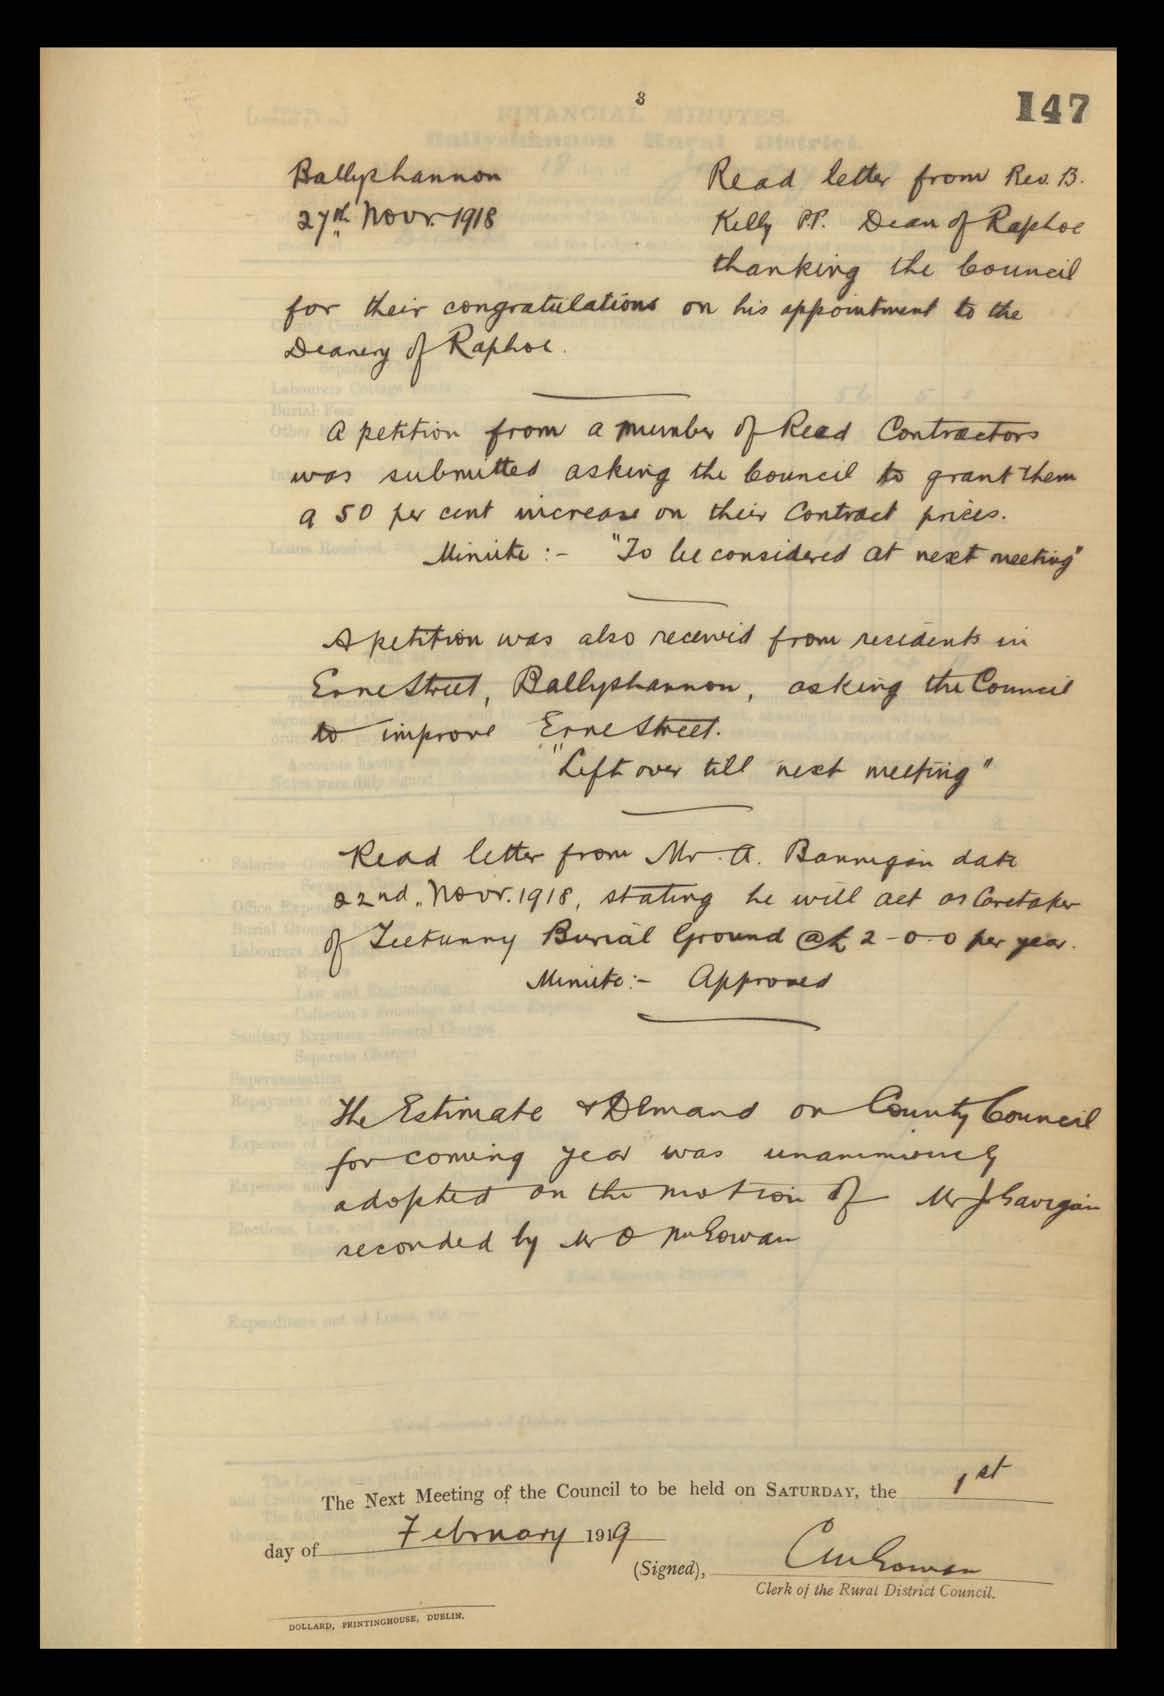 3
147
Ballyshannon
27th Novr. 1918
Read letter from Rev. B.
Kelly P.P. Dean of Raphoe
thanking the Council
for their congratulations on his appointment to the
Deanery of Raphoe.
A petition from a number of Road Contractors
was submitted asking the Council to grant them
a 50 per cent increase on their Contract prices.
Minute :- "To be considered at next meeting"
A petition was also received from residents in
Erne Street, Ballyshannon, asking the Council
to improve Erne Street.
"Left over till next meeting"
Read letter from Mr. A. Bannigan date
22nd Novr. 1918, stating he will act as Caretaker
of Teetunny Burial Ground @ £2-0-0 per year.
Minute:- Approved
The Estimate & Demand on County Council
for coming year was unanimously
adopted on the motion of Mr J Gavigan
seconded by Mr O McGowan
The Next Meeting of the Council to be held on SATURDAY, the 1st
day of February 1919
(Signed), C McGowan
Clerk of the Rural District Council.
DOLLARD, PRINTINGHOUSE, DUBLIN.